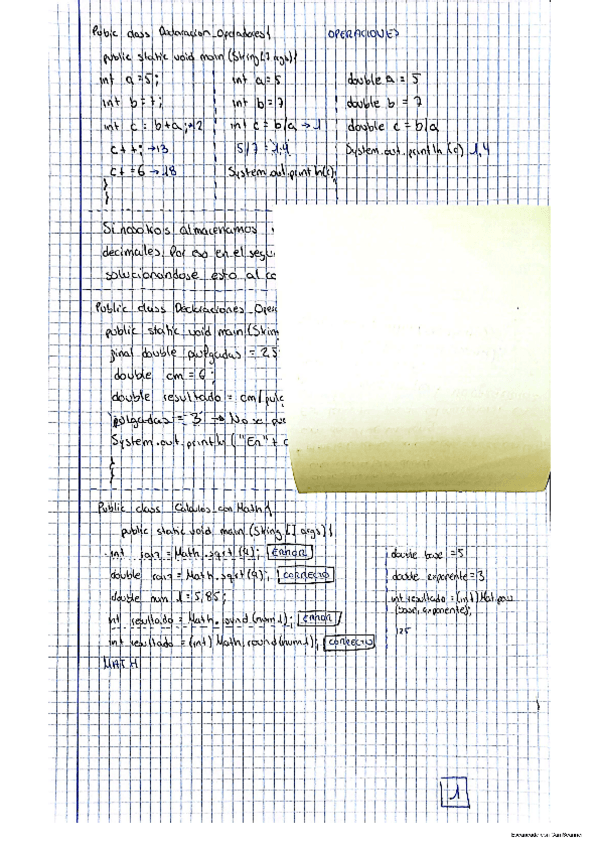 Public class Declaracion_Operadores{
OPERACIONES
public static void main (String[] args){
int a = 5;
int b = 7;
int c = b+a; →12
c++; →13
c+=6 →18
}
}
int a = 5
int b = 7
int c = b/a →1
5/7 = 1,4
System.out.println(c);
double a = 5
double b = 7
double c = b/a
System.out.println(c) 1,4
Si nosotros almacenamos
decimales. Por eso en el segu
solucionandose esto al
Public class Declaraciones_Oper
public static void main (Strin
final double pulgadas = 2.5
double cm = 6;
double resultado = cm/pulg
pulgadas = 3 → No se pue
System.out.println ("En" +
}
}
Public class Calculos_con_Math{
public static void main (String [] args){
int raiz = Math.sqrt(9); ERROR
double raiz = Math.sqrt(9); CORRECTO
double num1 = 5,85;
int resultado = Math.round(num1); ERROR
int resultado = (int) Math.round(num1); CORRECTO
MATH
double base = 5
double exponente = 3
int resultado = (int) Mat.pow
(base, exponente);
125
1
Escaneado con CamScanner